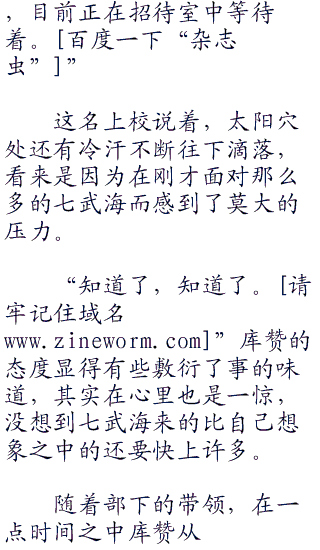 ，目前正在招待室中等待
着。[百度一下“杂志
虫”]”
这名上校说着，太阳穴
处还有冷汗不断往下滴落，
看来是因为在刚才面对那么
多的七武海而感到了莫大的
压力。
“知道了，知道了。[请
牢记住域名
www.zineworm.com]”库赞的
态度显得有些敷衍了事的味
道，其实在心里也是一惊，
没想到七武海来的比自己想
象之中的还要快上许多。
随着部下的带领，在一
点时间之中库赞从